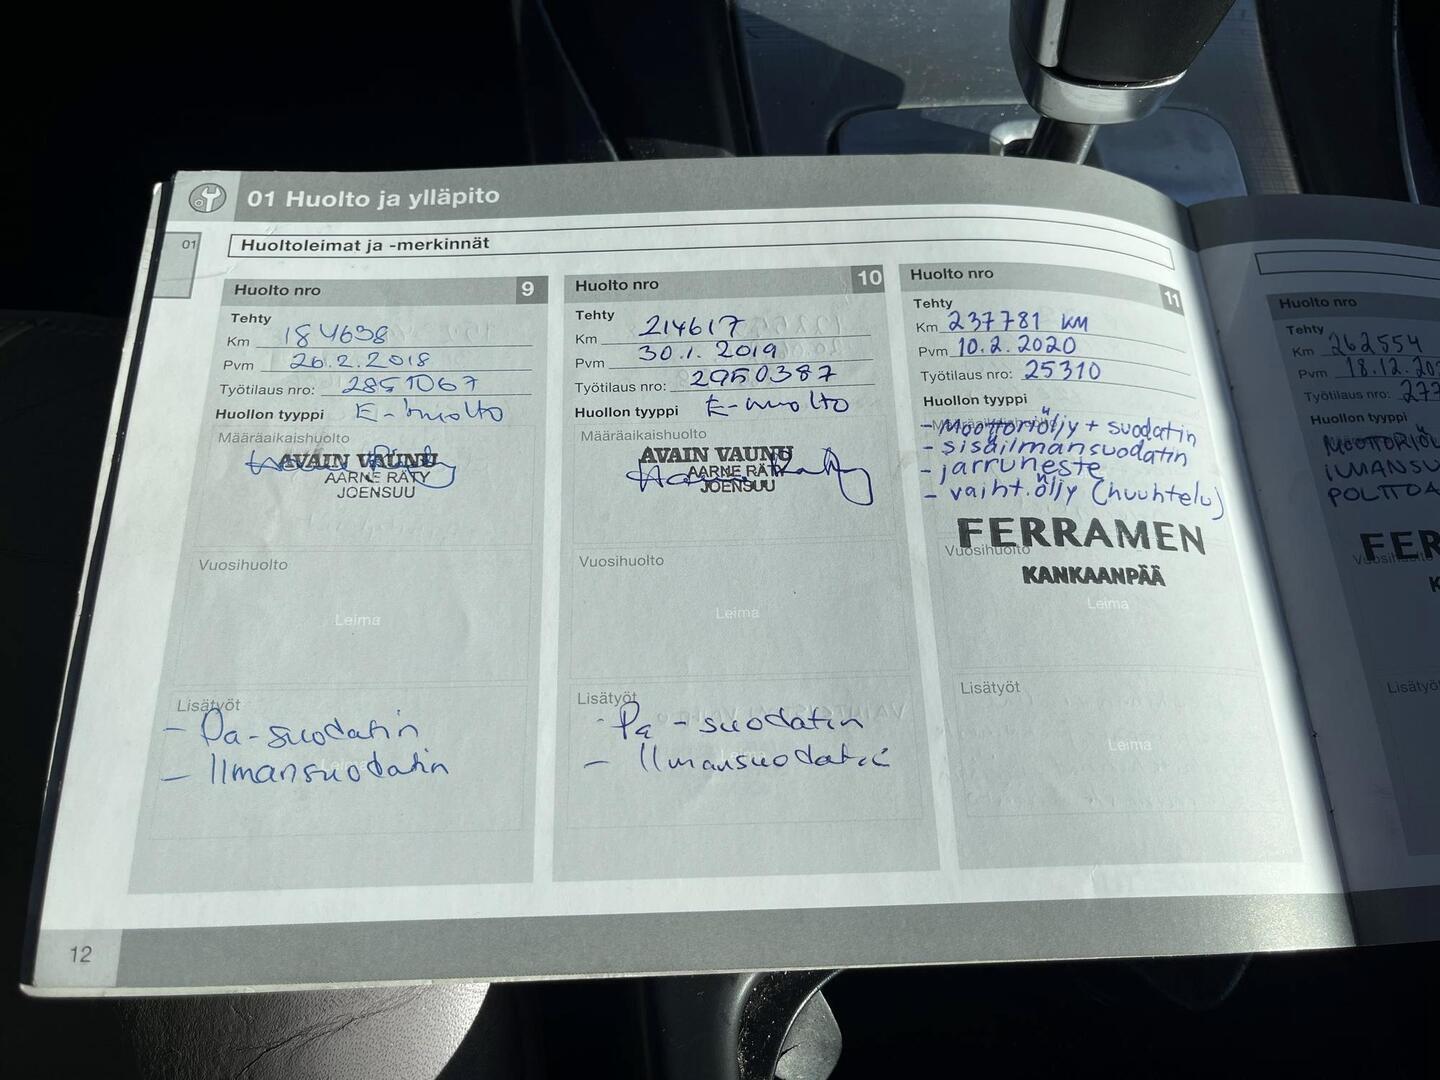 01 Huolto ja ylläpito
01
Huoltoleimat ja -merkinnät
Huolto nro 9
Tehty
Km 184638
Pvm 26.2.2018
Työtilaus nro: 2851067
Huollon tyyppi E-huolto
Määräaikaishuolto
AVAIN VAUNU
AARNE RÄTY
JOENSUU
Vuosihuolto
Leima
Lisätyöt
- Pa-suodatin
- Ilmansuodatin
Huolto nro 10
Tehty
Km 214617
Pvm 30.1.2019
Työtilaus nro: 2950387
Huollon tyyppi E-huolto
Määräaikaishuolto
AVAIN VAUNU
AARNE RÄTY
JOENSUU
Vuosihuolto
Leima
Lisätyöt
- Pa-suodatin
- Ilmansuodatin
Huolto nro 11
Tehty
Km 237781 KM
Pvm 10.2.2020
Työtilaus nro: 25310
Huollon tyyppi
- Moottoriöljy + suodatin
- sisäilmansuodatin
- jarruneste
- vaiht.öljy (huuhtelu)
FERRAMEN
Vuosihuolto
KANKAANPÄÄ
Leima
Lisätyöt
Leima
Huolto nro
Tehty
Km 262554
Pvm 18.12.20
Työtilaus nro: 277
Huollon tyyppi
MOOTTORIÖL
ILMANSU
POLTTOA
FER
Vuosihuolto
K
Lisätyö
12